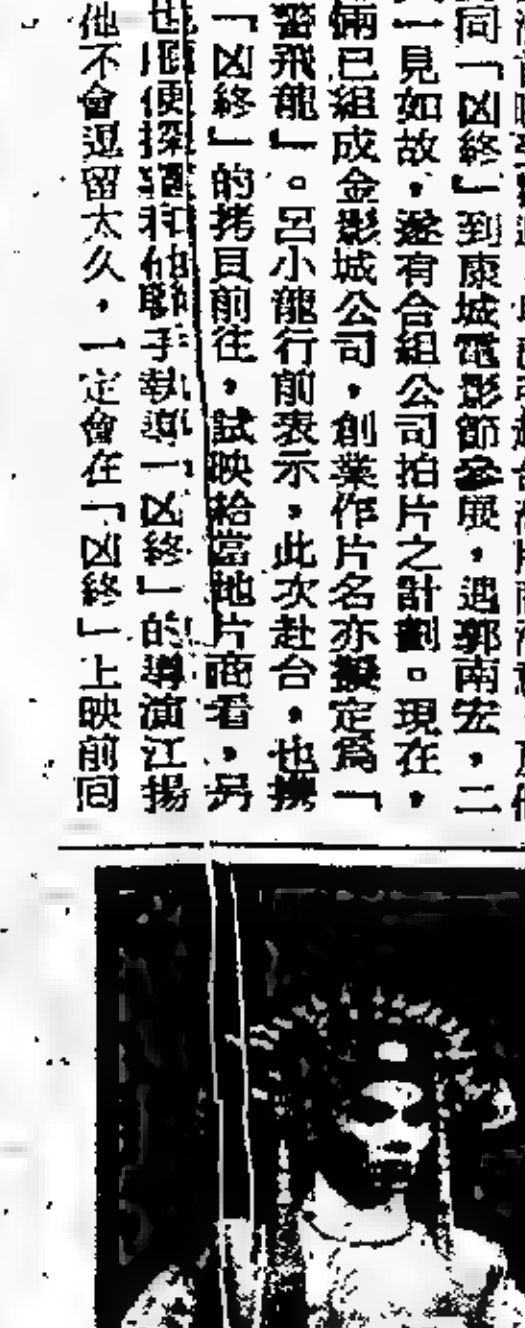 同「凶終」到康城電影節參展，遇郭南宏，二
一見如故，遂有合組公司拍片之計劃。現在，
倆已組成金影城公司，創業作片名亦擬定為「
警飛龍」。呂小龍行前表示，此次赴台，也攜
「凶終」的拷貝前往，試映給當地片商看，另
也順便探班和他聯手執導「凶終」的導演江揚
他不會逗留太久，一定會在「凶終」上映前回